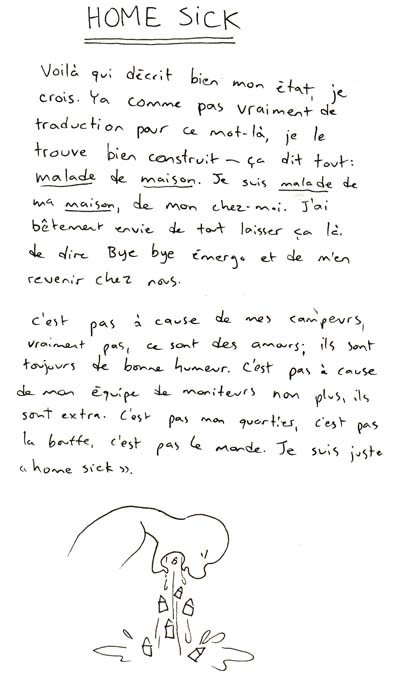 HOME SICK
Voilà qui décrit bien mon état, je
crois. Ya comme pas vraiment de
traduction pour ce mot-là, je le
trouve bien construit – ça dit tout:
malade de maison. Je suis malade de
ma maison, de mon chez-moi. J'ai
bêtement envie de tout laisser ça là.
de dire Bye bye Émergo et de m'en
revenir chez nous.
c'est pas à cause de mes campeurs,
vraiment pas, ce sont des amours; ils sont
toujours de bonne humeur. C'est pas à cause
de mon équipe de moniteurs non plus, ils
sont extra. C'est pas mon quartier, c'est pas
la bouffe, c'est pas le monde. Je suis juste
« home sick ».